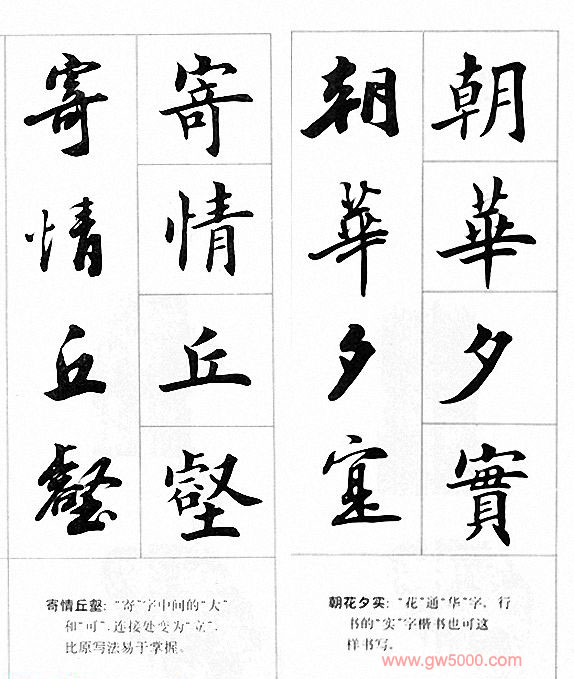 朝華夕實
朝華夕寔
寄情丘壑
寄情丘壑
朝花夕实：“花”通“华”字。行
书的“实”字楷书也可这
样书写。
寄情丘壑：“寄”字中间的“大”
和“可”，连接处变为“立”，
比原写法易于掌握。
www.gw5000.com